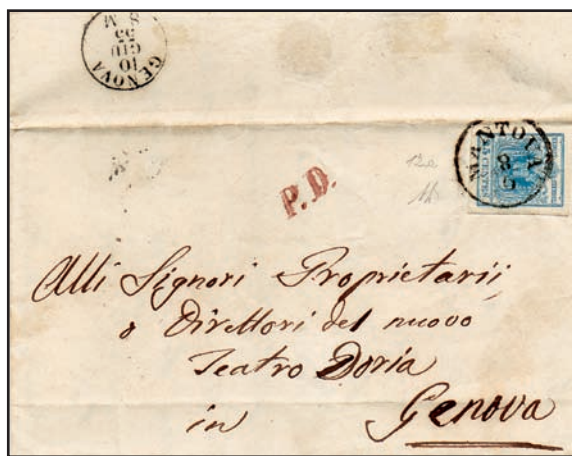 GENOVA
10
GIU
55
8 M
MANTOVA
8
6
P.D.
12a
Alli Signori Proprietarii
o Direttori del nuovo
Teatro Doria
in Genova